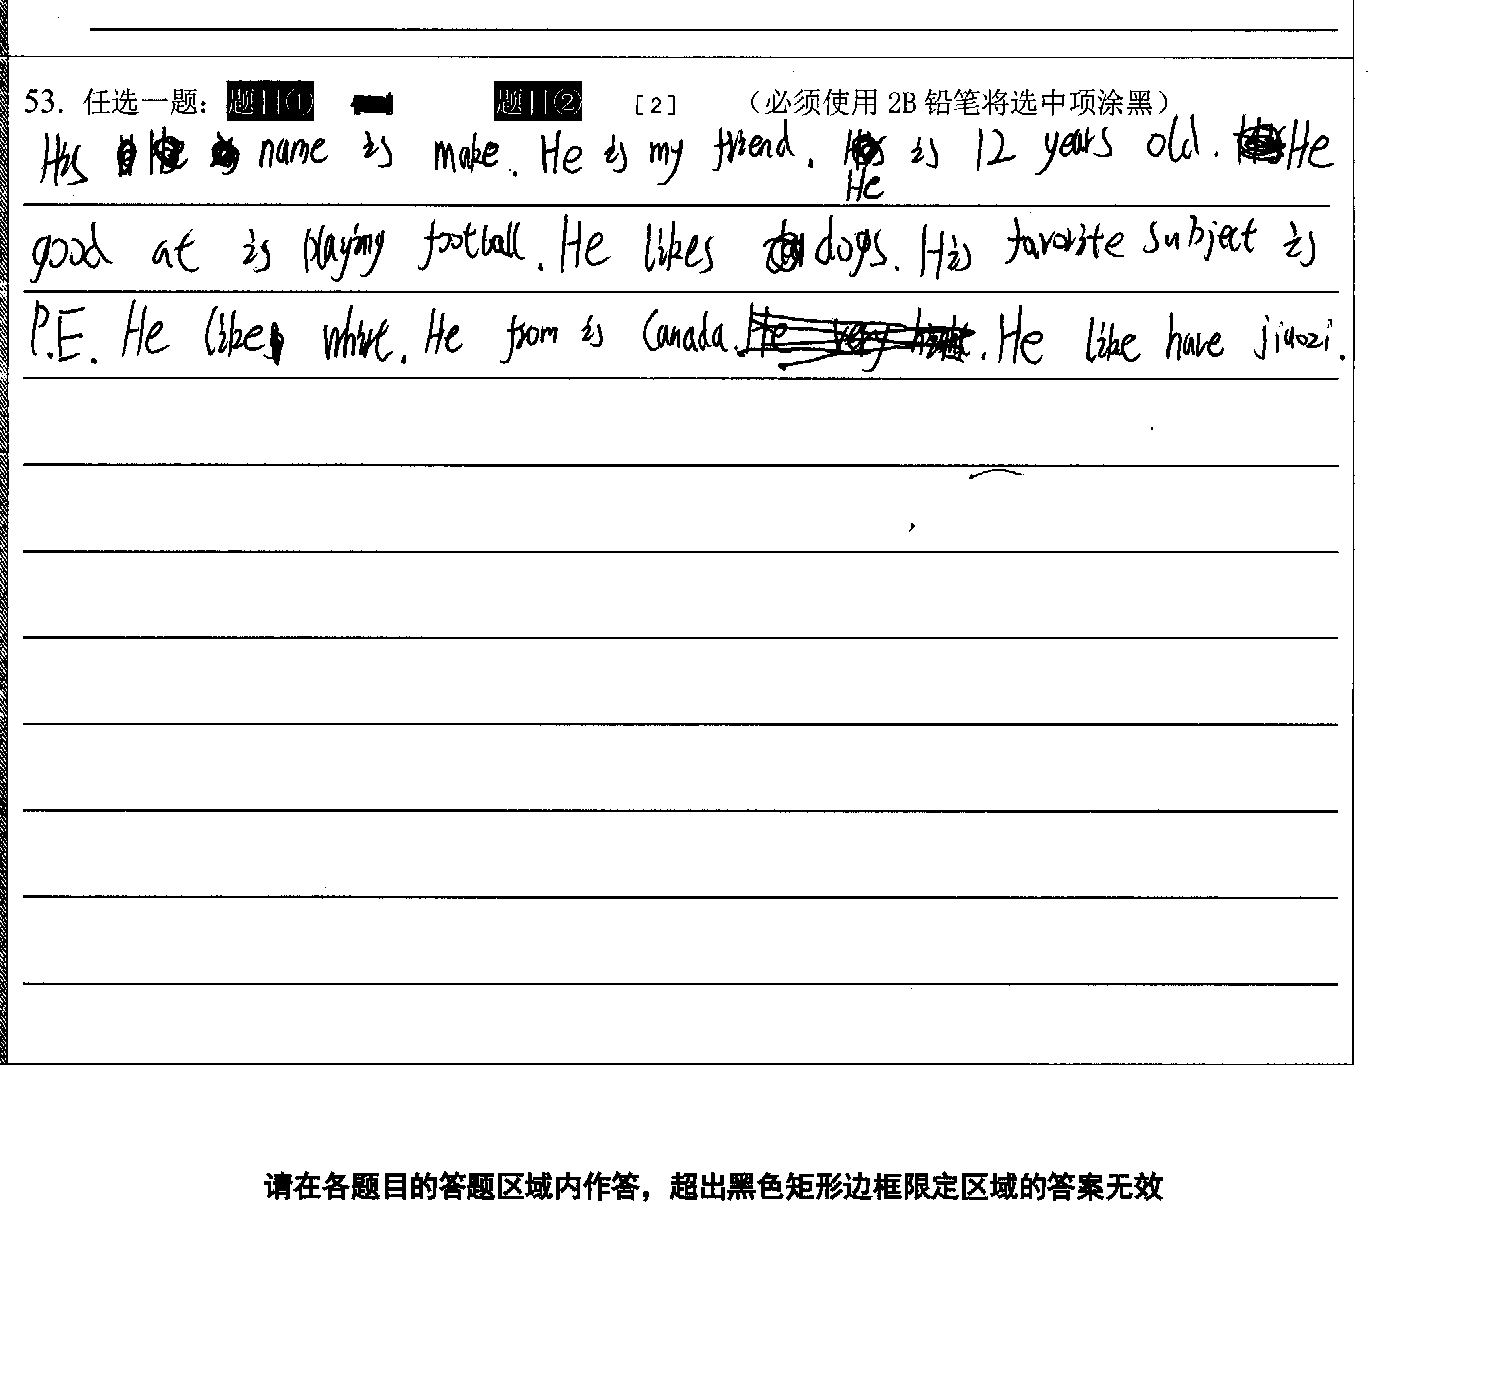 53. 任选一题： 题目① 题目② [2] （必须使用 2B 铅笔将选中项涂黑）
His name is make. He is my friend. He is 12 years old. He
good at is playing football. He likes dogs. His favorite subject is
P.E. He like white. He from is Canada. He like have jiaozi.
请在各题目的答题区域内作答，超出黑色矩形边框限定区域的答案无效